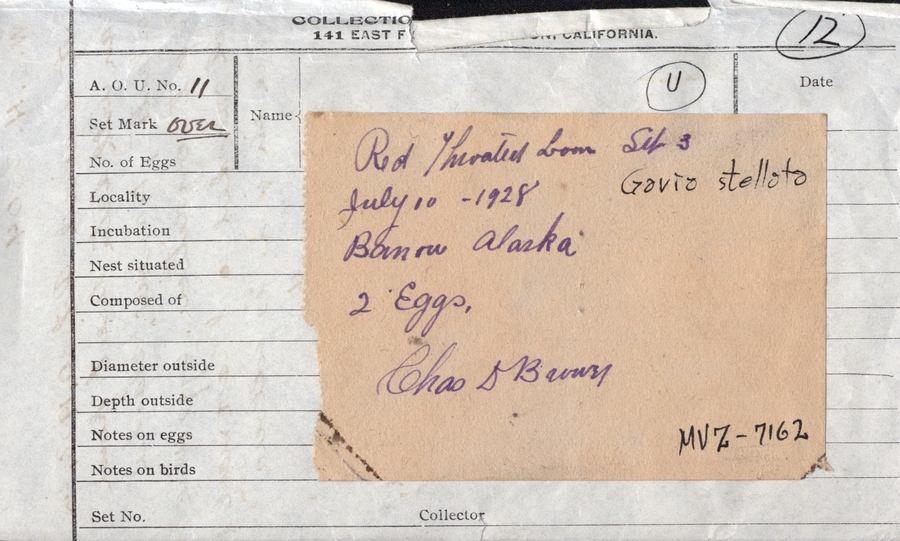 COLLECTIO
12
141 EAST F ON, CALIFORNIA.
A. O. U. No. 11
U
Date
Set Mark over
Name
No. of Eggs
Locality
Incubation
Nest situated
Composed of
Diameter outside
Depth outside
Notes on eggs
Notes on birds
Set No.
Collector
Red Throated Loon Set 3
Gavia stellata
July 10 - 1928
Barrow Alaska
2 Eggs.
Chas D Brower
MVZ-7162